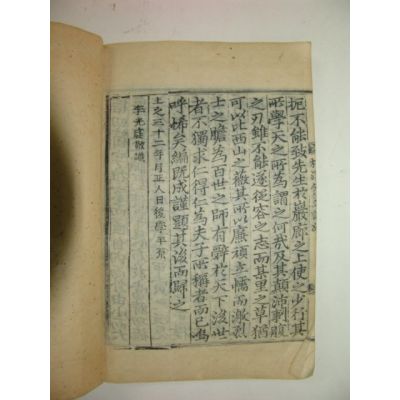 扼不能致先生於巖廊之上使之少行其
所學天之所為謂之何哉及其顛沛剚腹
之刃雖不能遂從容之志而某里之草猶
可以比西山之薇其所以廉頑立懦而激烈
士之膽為百世之師有辭於天下後世
者不獨求仁得仁為夫子所稱者而已嗚
呼悕矣編既成謹題其後而歸之
上之三十二年月正人日後學年
李光庭敬識